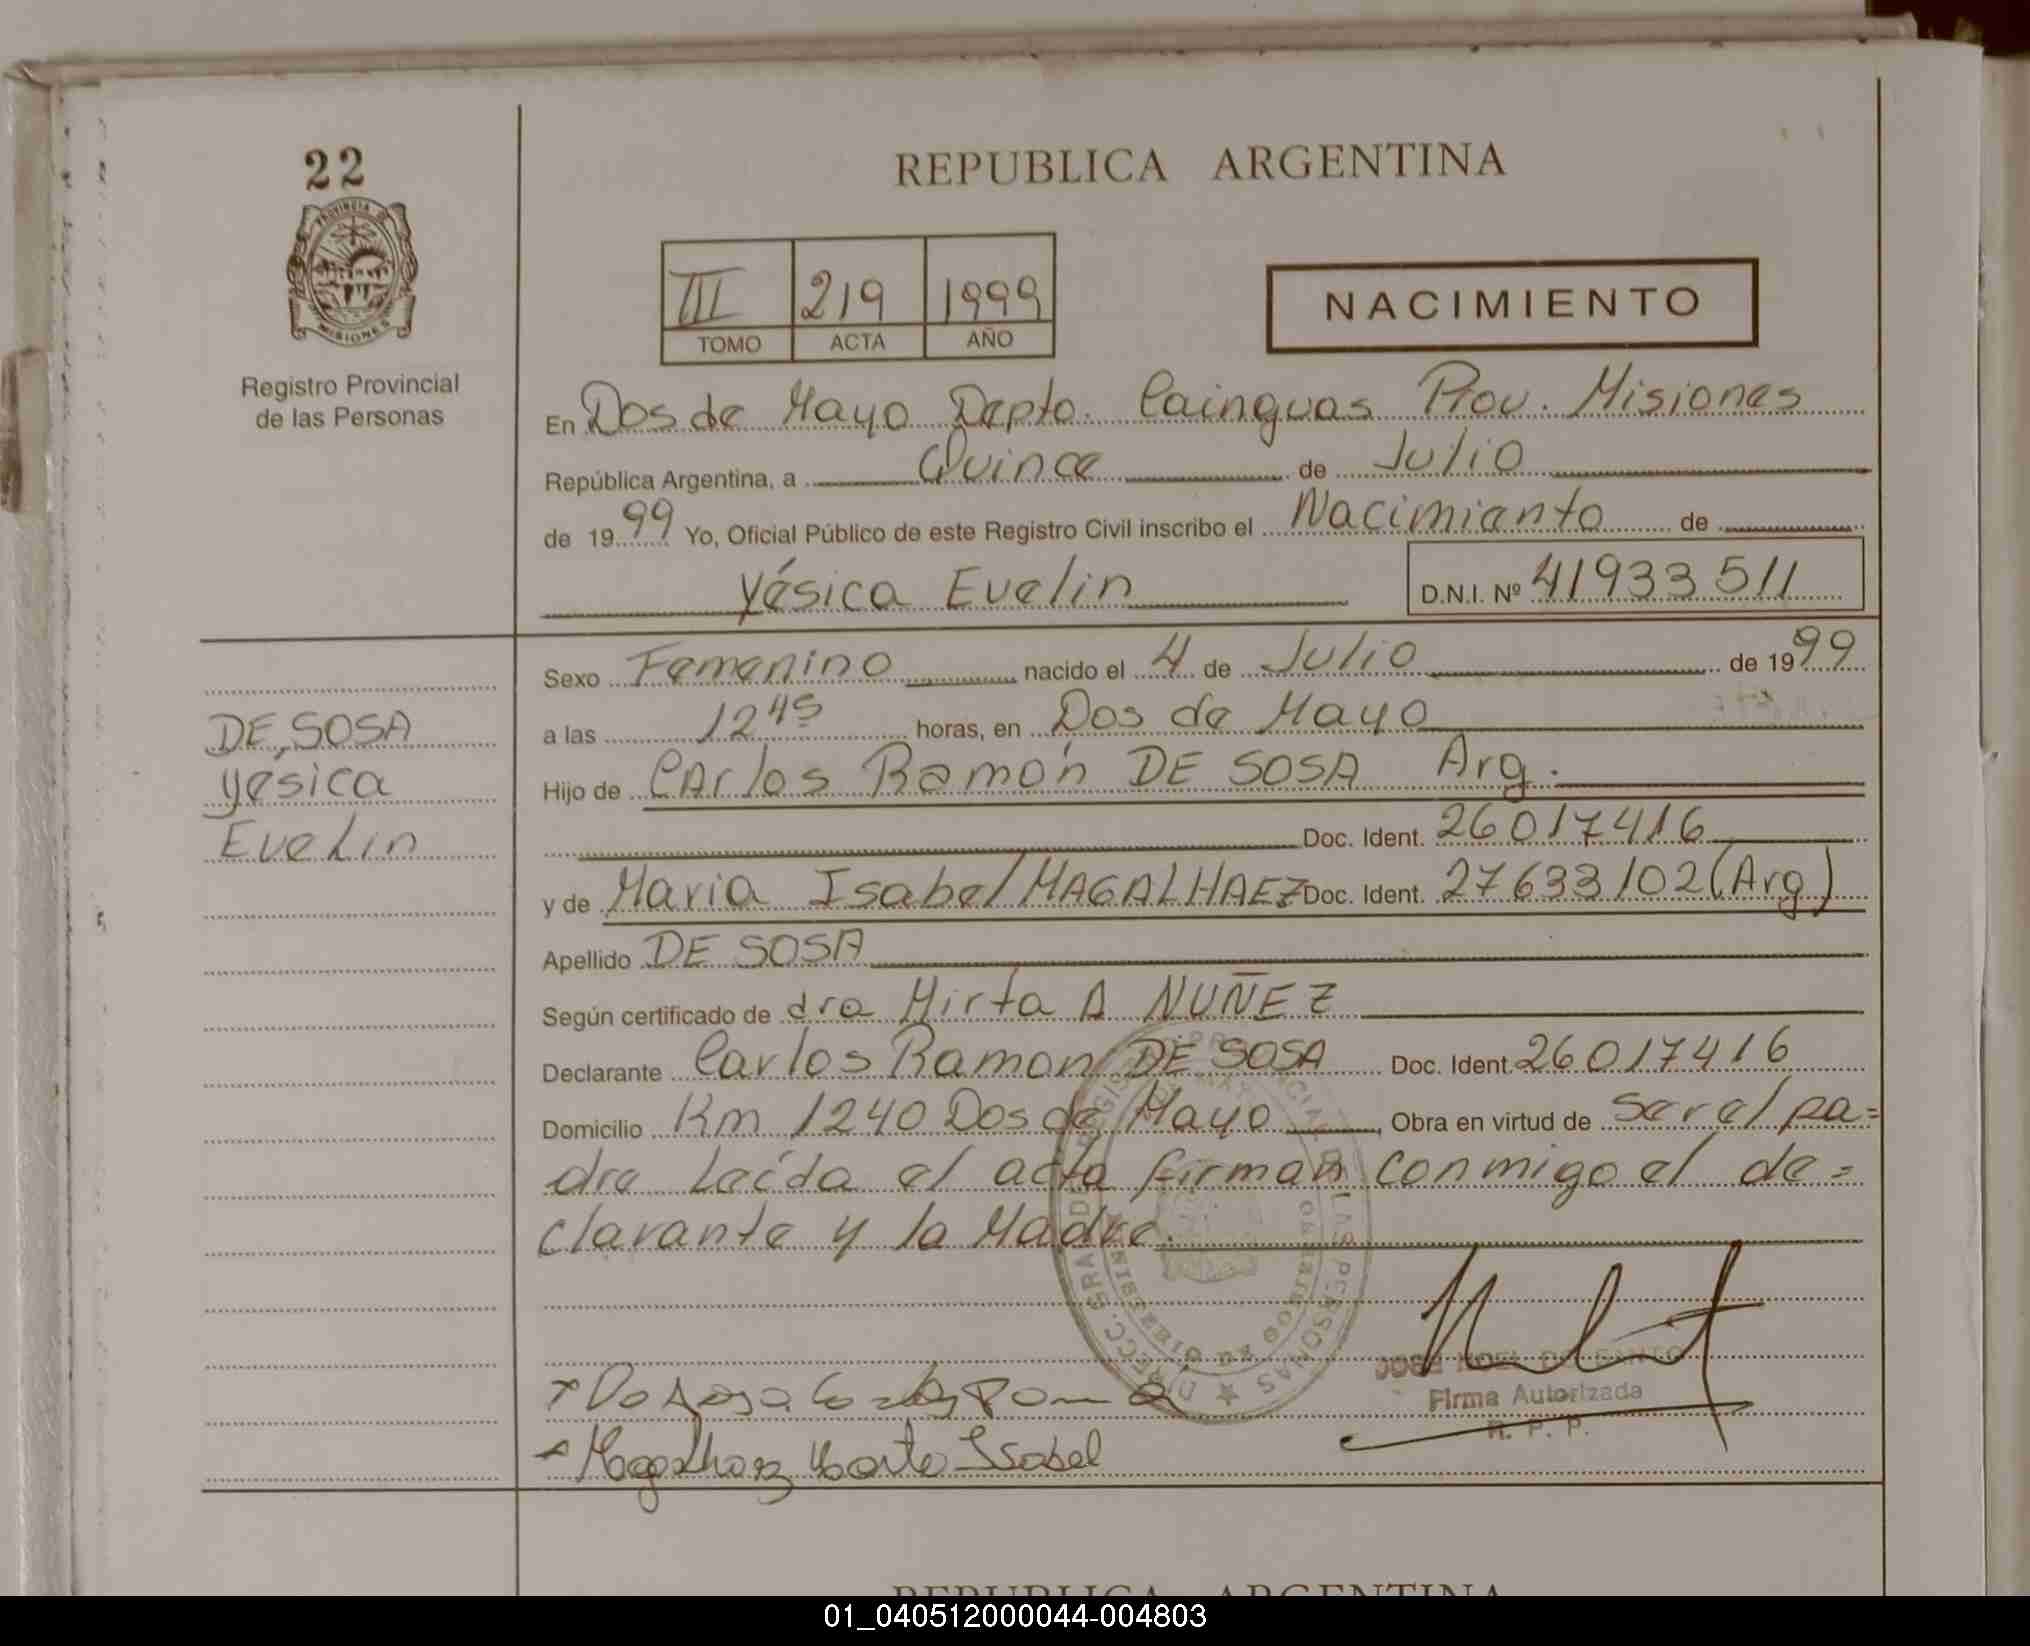 22
PROVINCIA DE
MISIONES
Registro Provincial
de las Personas
REPUBLICA ARGENTINA
III 219 1999
TOMO ACTA AÑO
NACIMIENTO
En Dos de Mayo Depto. Cainguas Prov. Misiones
República Argentina, a Quince de Julio
de 1999 Yo, Oficial Público de este Registro Civil inscribo el Nacimiento de
Yésica Evelin D.N.I. Nº 41933511
DE SOSA
Yésica
Evelin
Sexo Femenino nacido el 4 de Julio de 1999
a las 12 45 horas, en Dos de Mayo
Hijo de Carlos Ramón DE SOSA Arg.
Doc. Ident. 26017416
y de Maria Isabel MAGALHAEZ Doc. Ident. 27633102 (Arg)
Apellido DE SOSA
Según certificado de dra Mirta A NUÑEZ
Declarante Carlos Ramon DE SOSA Doc. Ident. 26017416
Domicilio Km 1240 Dos de Mayo, Obra en virtud de ser el pa=
dre Leída el acta firman conmigo el de=
clarante y la Madre.
De Sosa Carlos Ramon
Magalhaez Maria Isabel
JOSE NOEL
Firma Autorizada
R. P. P.
REPUBLICA ARGENTINA
01_040512000044-004803